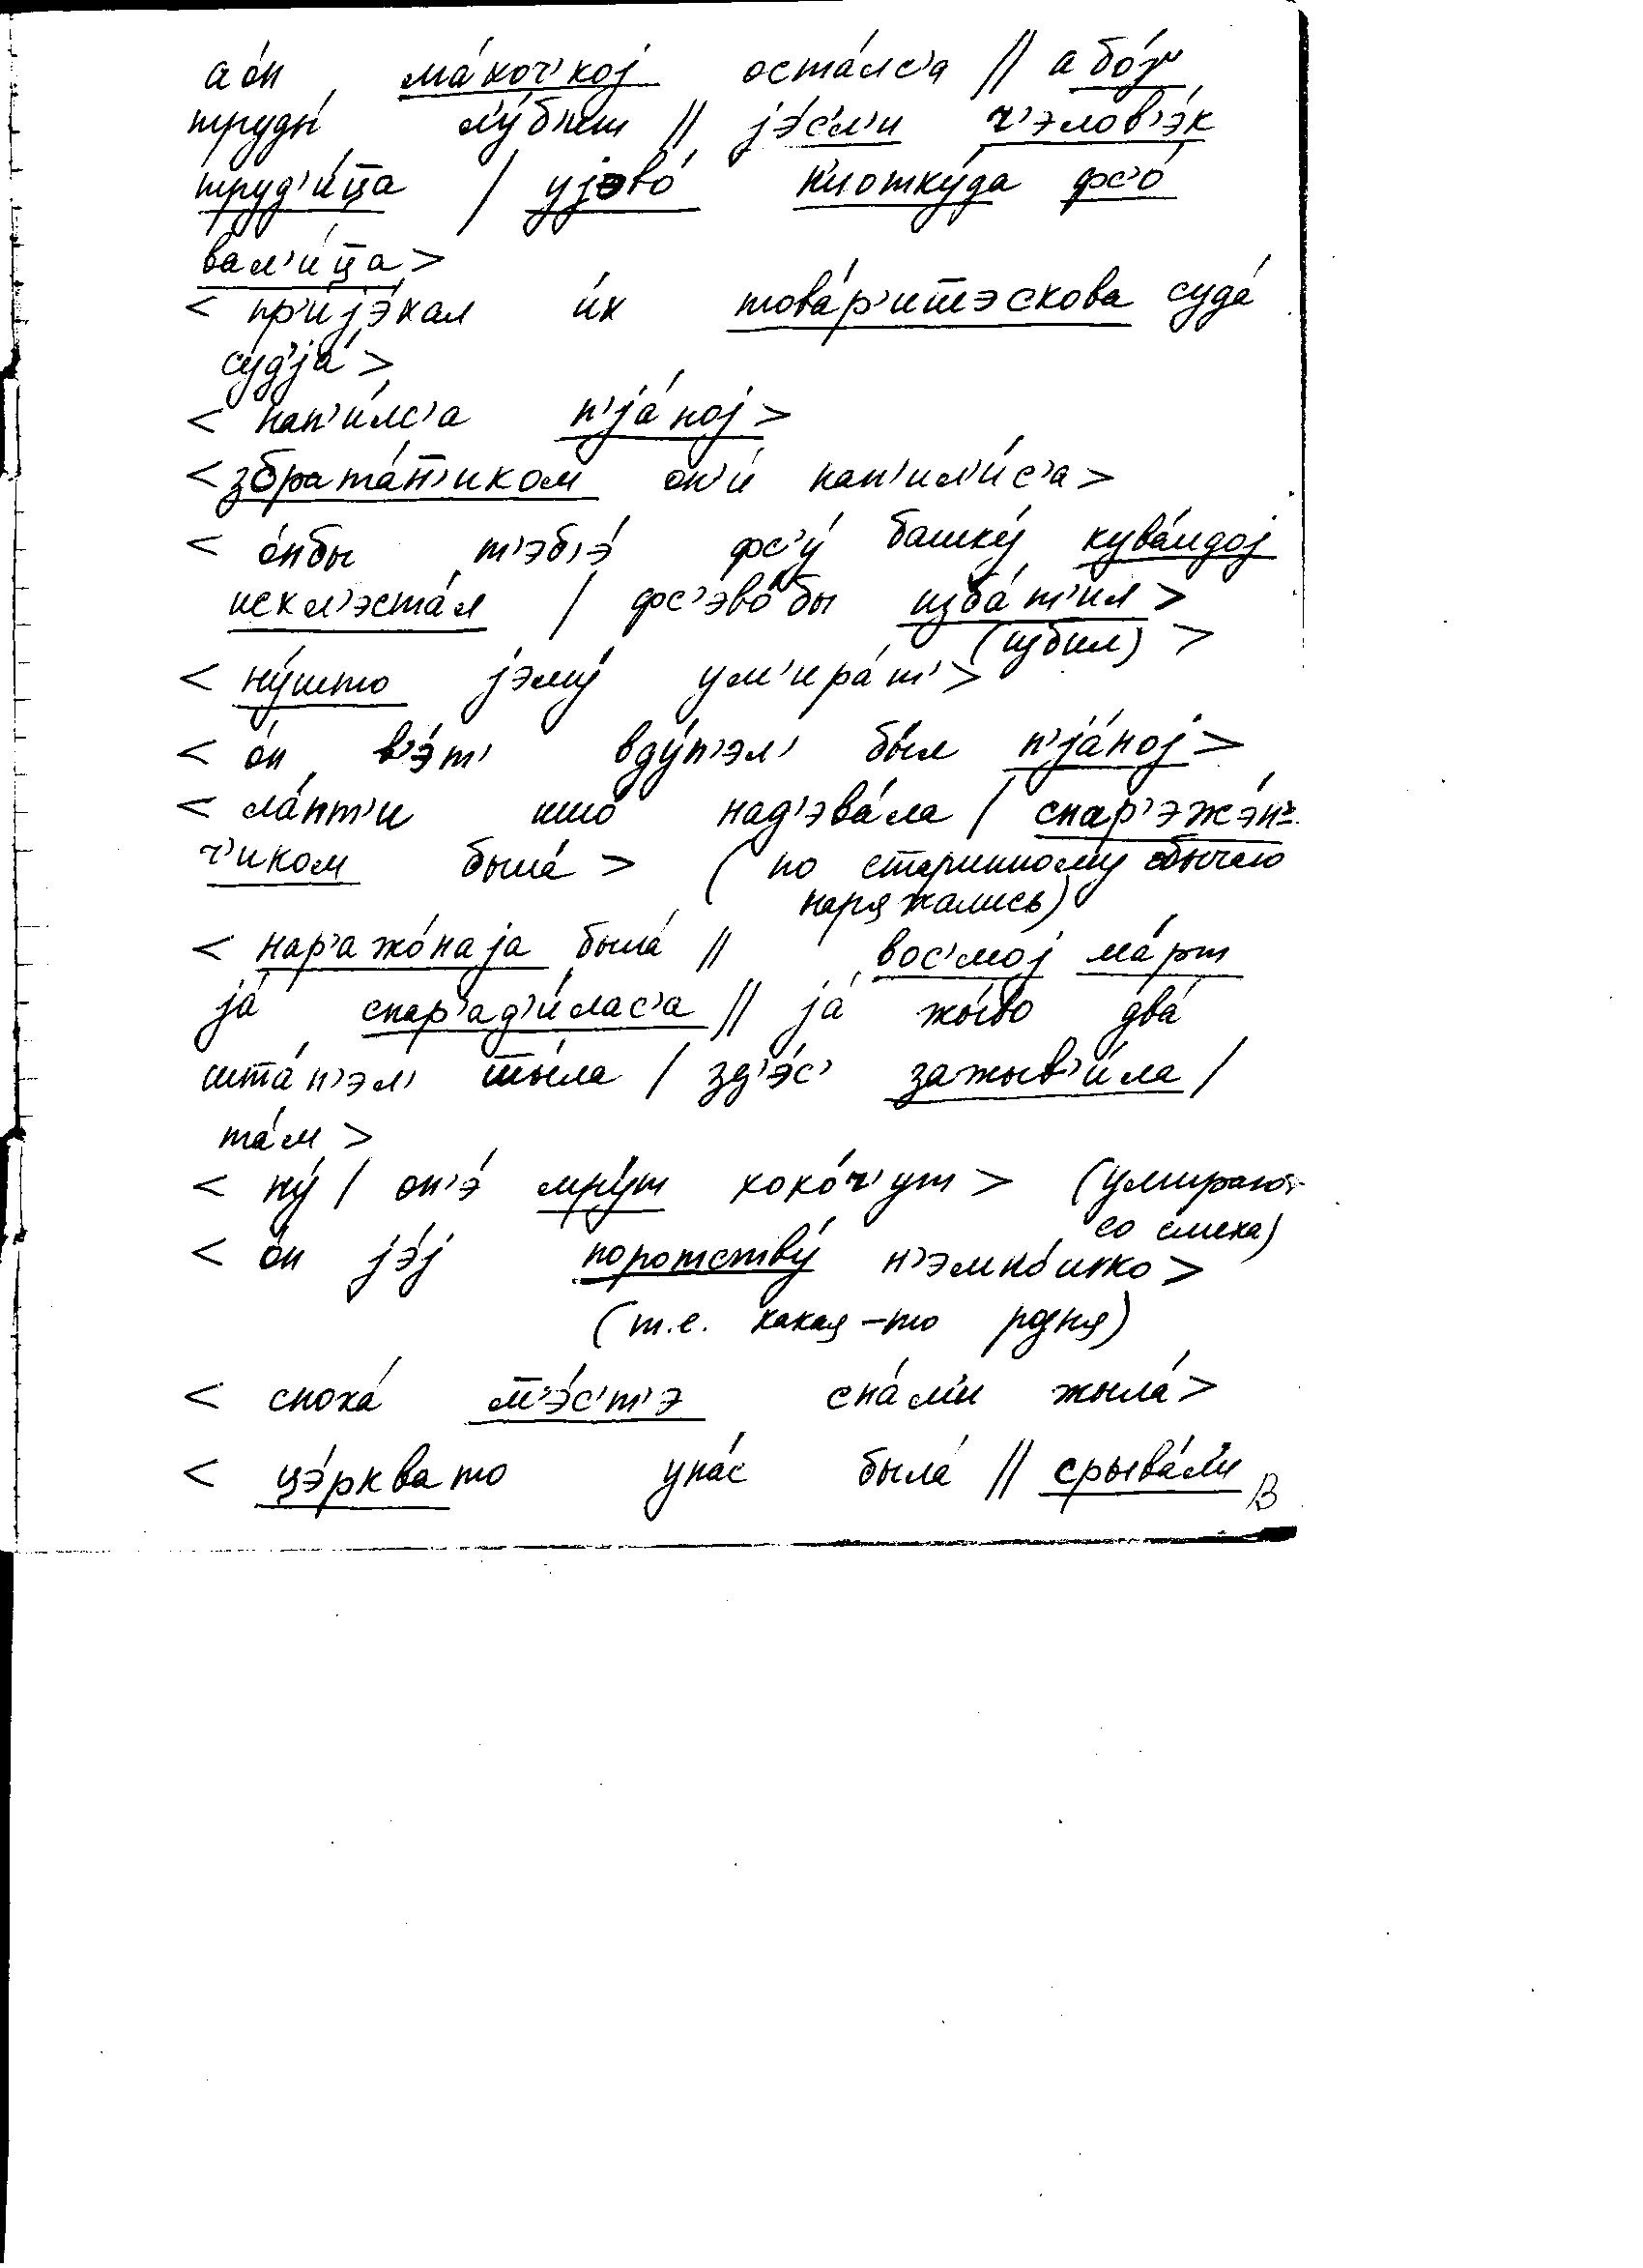 а о́н ма́хоч'кој оста́лс'а // а бо́γ
труды́ л'у́б'ит // јэ́с'л'и ч'элов'э́к
труд'и́ц̅а / ујэво́ н'иотку́да фс'о́
вал'и́ц̅а >
< пр'ијэ́хал и́х това́р'ит̅эскова суда́
суд'ја́ >
< нап'и́лс'а п'ја́ној >
< збрата́н'иком он'и́ нап'ил'и́с'а >
< о́нбы т'эб'э́ фс'у́ башку́ кува́лдој
искл'эста́л / фс'эво́бы изба́т'ил >
(избил) >
< ну́што јэму́ ум'ира́т' >
< о́н в'э́т' вду́п'эл' бы́л п'ја́ној >
< ла́пт'и ишо́ над'эва́ла / снар'эжэ́н-
ч'иком была́ > (по старинному обычаю
наряжались)
< нар'ажо́наја была́ // вос'мој ма́рт
ја́ снар'ад'и́лас'а // ја́ жы́во два́
шта́п'эл' шы́ла / зд'э́с' зажыв'и́ла /
та́м >
< ну́ / он'э́ мру́т хохо́ч'ут > (умирают
со смеха)
< о́н јэ́ј поротству́ н'эмно́шко >
(т.е. какая-то родня)
< сноха́ м'э́с'т'э сна́м'и жыла́ >
< цэ́рквато уна́с была́ // срыва́л'и